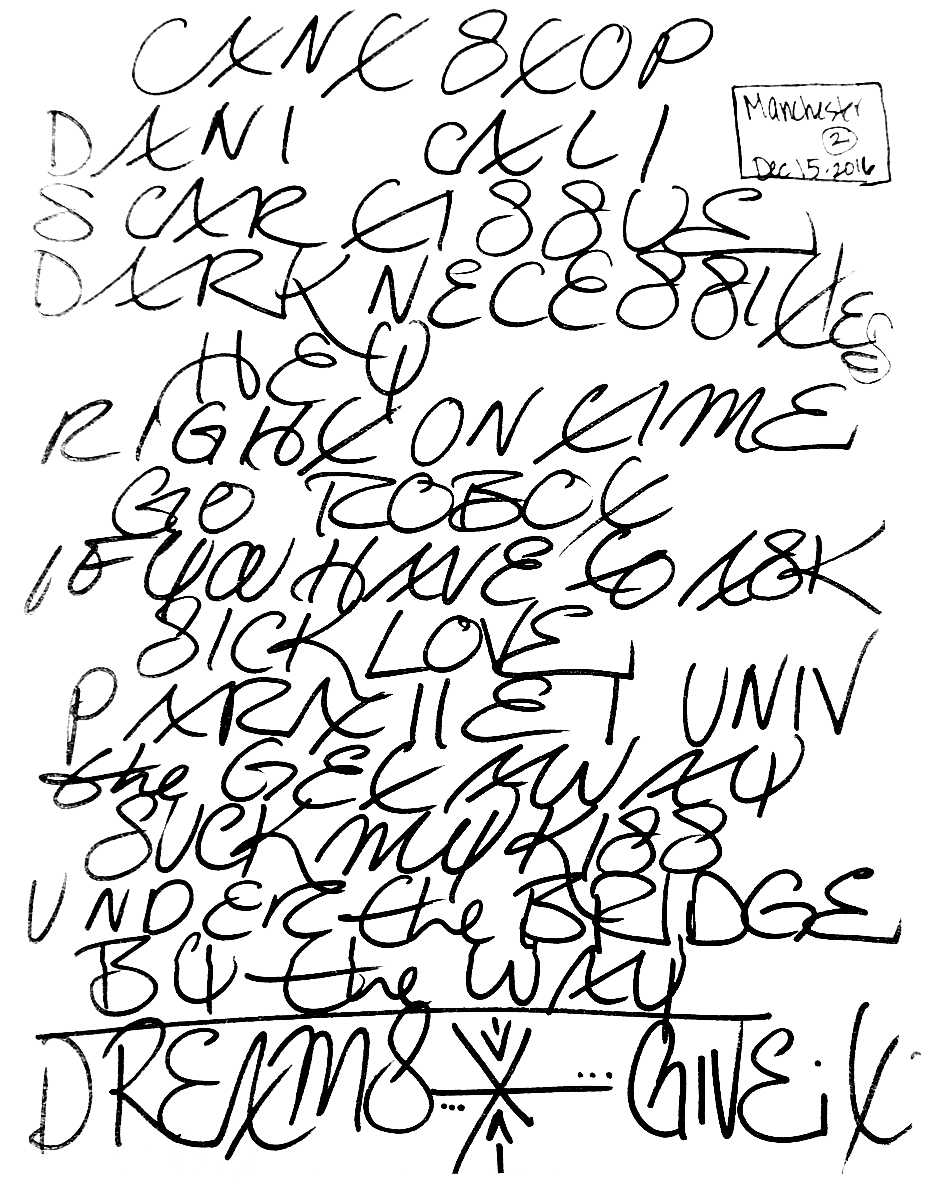 CANT STOP
DANI CALI
Manchester
2
Dec 15.2016
SCAR TISSUE
DARK NECESSITIES
HEY
RIGHT ON TIME
GO ROBOT
IF YOU HAVE to ASK
SICK LOVE
PARALLEL UNIV
the GETAWAY
SUCK MY KISS
UNDER the BRIDGE
BY the WAY
DREAMS GIVE iT